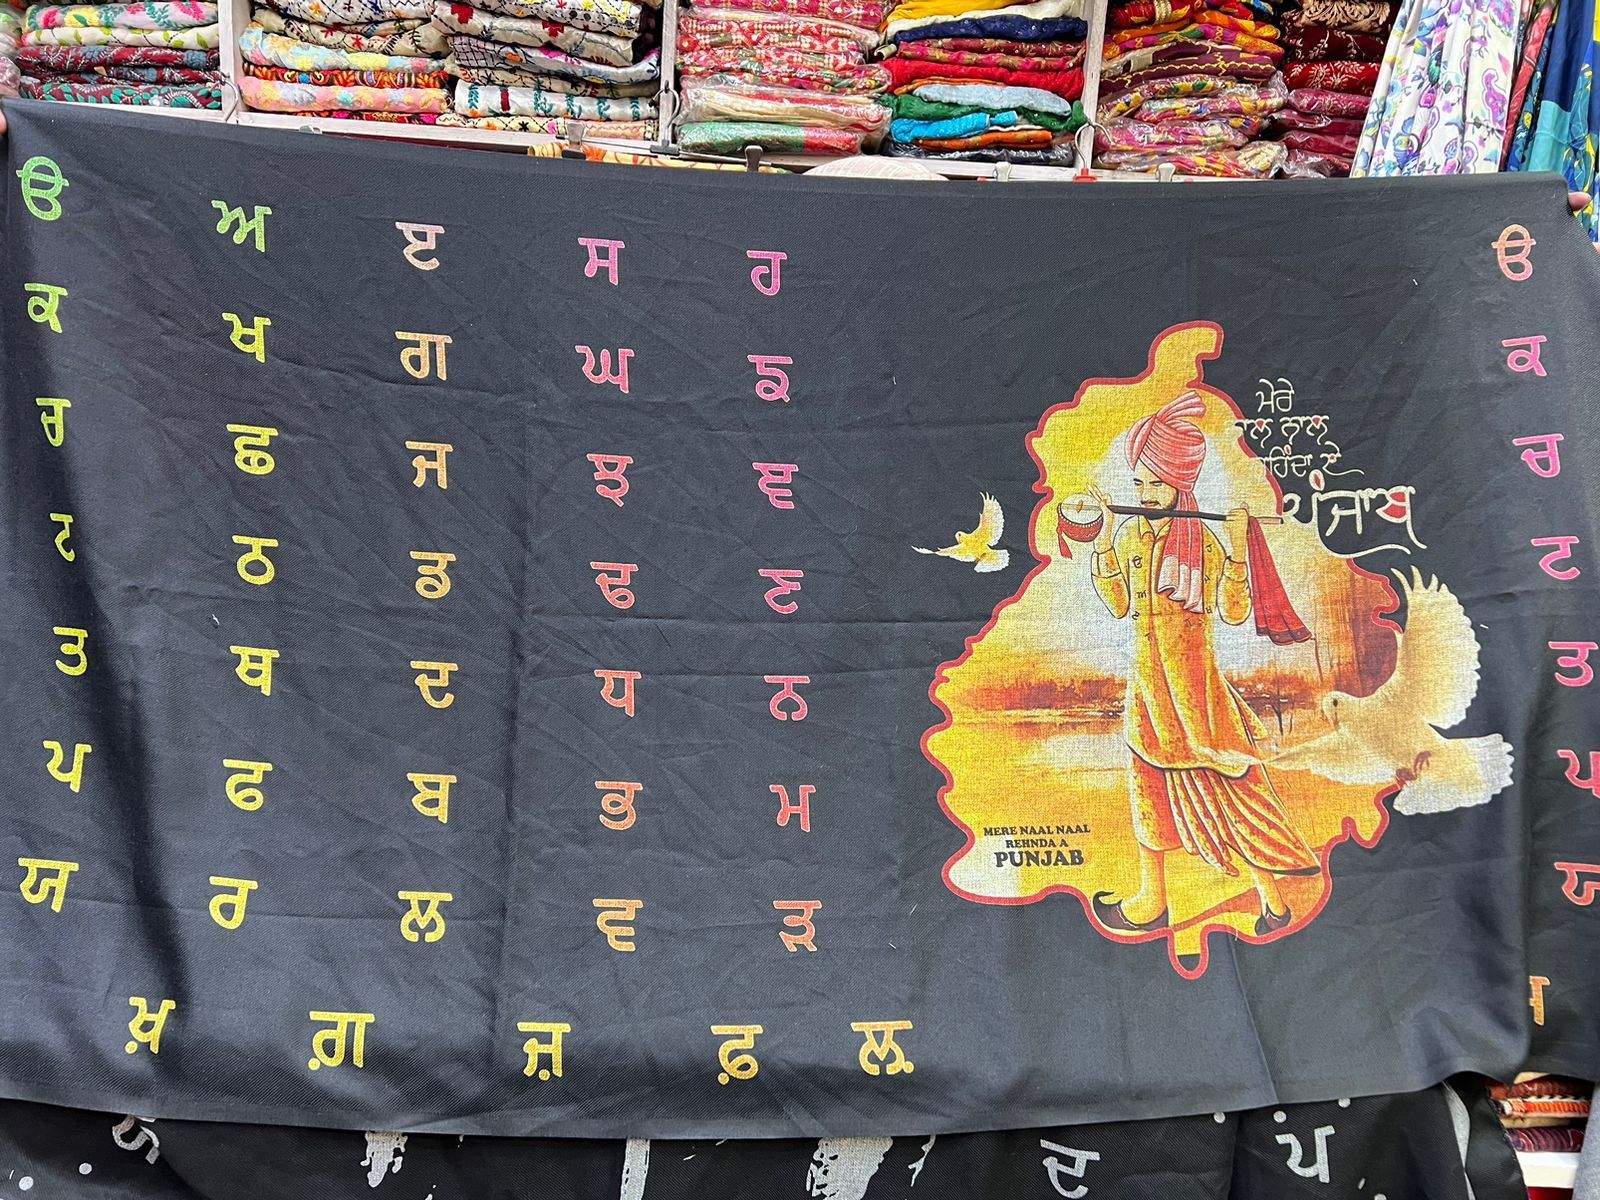 ੳ ਅ ੲ ਸ ਹ
ਕ ਖ ਗ ਘ ਙ
ਚ ਛ ਜ ਝ ਞ
ਟ ਠ ਡ ਢ ਣ
ਤ ਥ ਦ ਧ ਨ
ਪ ਫ ਬ ਭ ਮ
ਯ ਰ ਲ ਵ ੜ
ਖ਼ ਗ਼ ਜ਼ ਫ਼ ਲ਼
ਮੇਰੇ
ਨਾਲ
ਪੰਜਾਬ
MERE NAAL NAAL
REHNDA A
PUNJAB
ੳ
ਕ
ਚ
ਟ
ਤ
ਪ
ਯ
ਦ ਪੰ